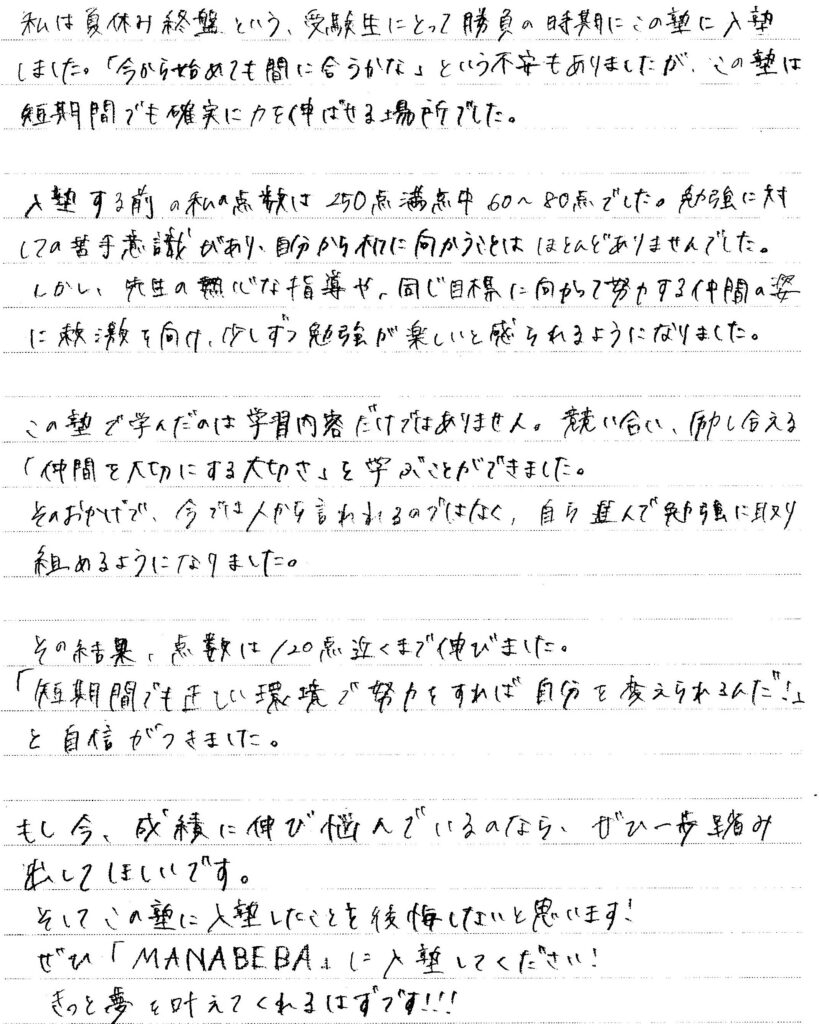 私は夏休み終盤という、受験生にとって勝負の時期にこの塾に入塾
しました。「今から始めても間に合うかな」という不安もありましたが、この塾は
短期間でも確実に力を伸ばせる場所でした。
入塾する前の私の点数は250点満点中60~80点でした。勉強に対
しての苦手意識があり、自分から机に向かうことはほとんどありませんでした。
しかし、先生の熱心な指導や、同じ目標に向かって努力する仲間の姿
に刺激を向け、少しずつ勉強が楽しいと感じられるようになりました。
この塾で学んだのは学習内容だけではありません。競い合い、励し合える
「仲間を大切にする大切さ」を学ぶことができました。
そのおかげで、今では人から言われるのではなく、自ら進んで勉強に取り
組めるようになりました。
その結果、点数は120点近くまで伸びました。
「短期間でも正しい環境で努力をすれば自分を変えられるんだ!」
と自信がつきました。
もし今、成績に伸び悩んでいるのなら、ぜひ一歩踏み
出してほしいです。
そしてこの塾に入塾したことを後悔しないと思います!
ぜひ「MANABEBA」に入塾してください!
きっと夢を叶えてくれるはずです!!!